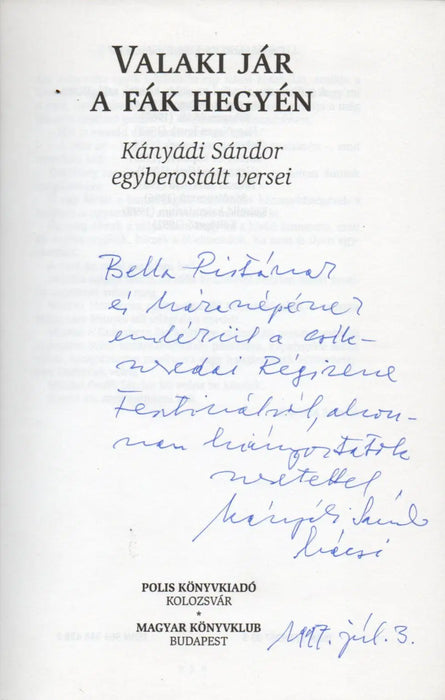 VALAKI JÁR
A FÁK HEGYÉN
Kányádi Sándor
egyberostált versei
Bella Pistának
és háza népének
emlékül a csík-
szeredai Régizene
Fesztiválról, ahon-
nan hiányoztatok
szeretettel
Kányádi Sándor
bácsi
POLIS KÖNYVKIADÓ
KOLOZSVÁR
*
MAGYAR KÖNYVKLUB
BUDAPEST
1997. júl. 3.